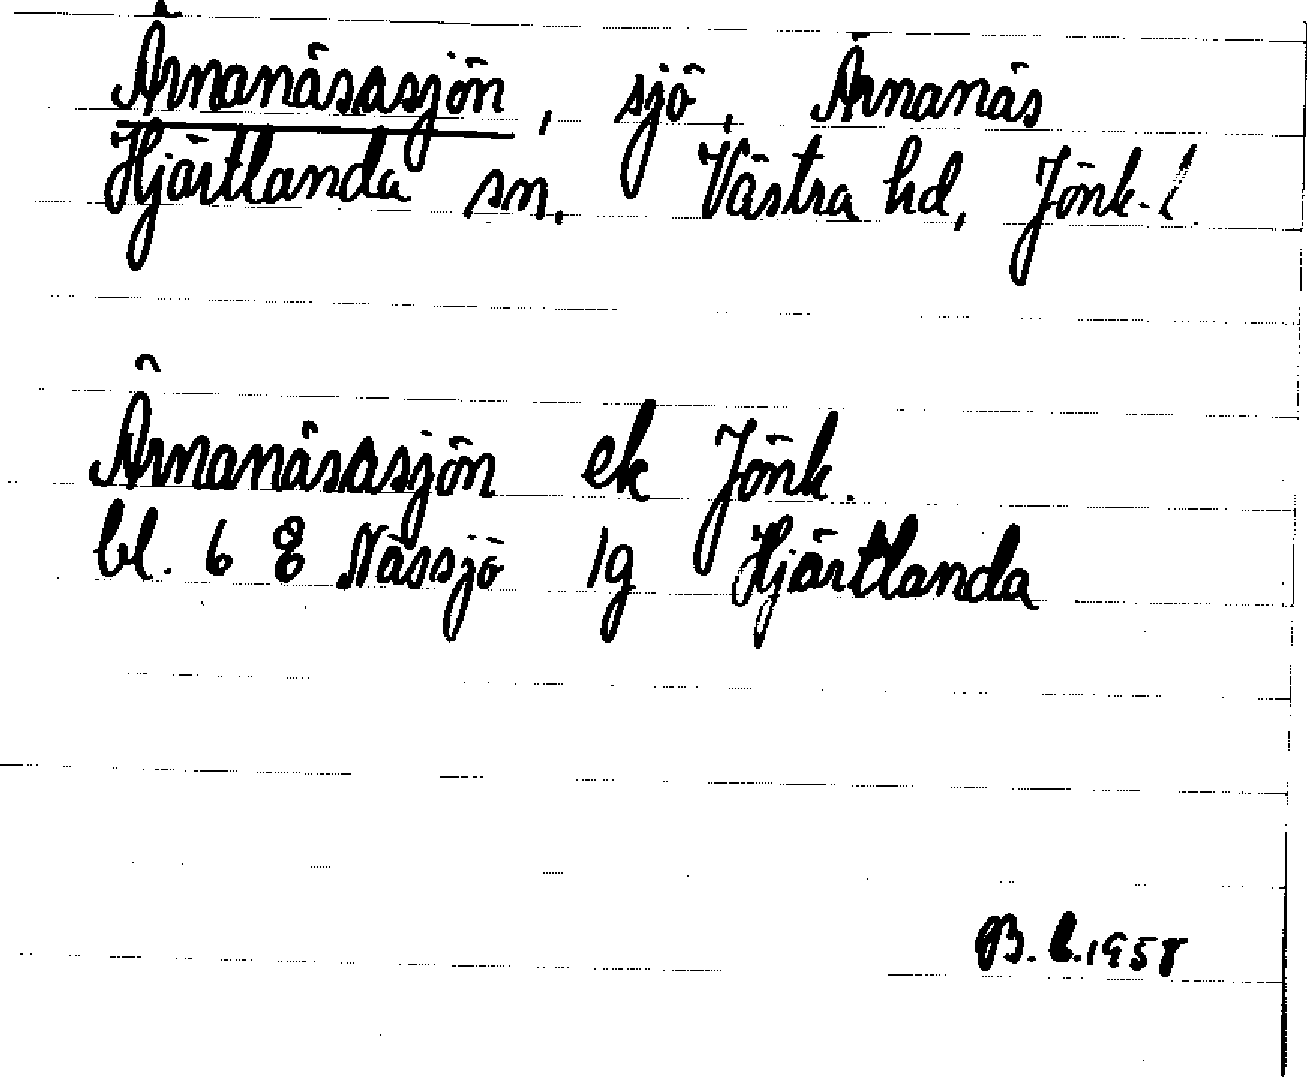 Årnanäsasjön, sjö, Årnanäs
Hjärtlanda sn. Västra hd, Jönk. l.
Årnanäsasjön ek Jönk.
bl. 6 8 Nässjö 1g Hjärtlanda
B. L. 1958